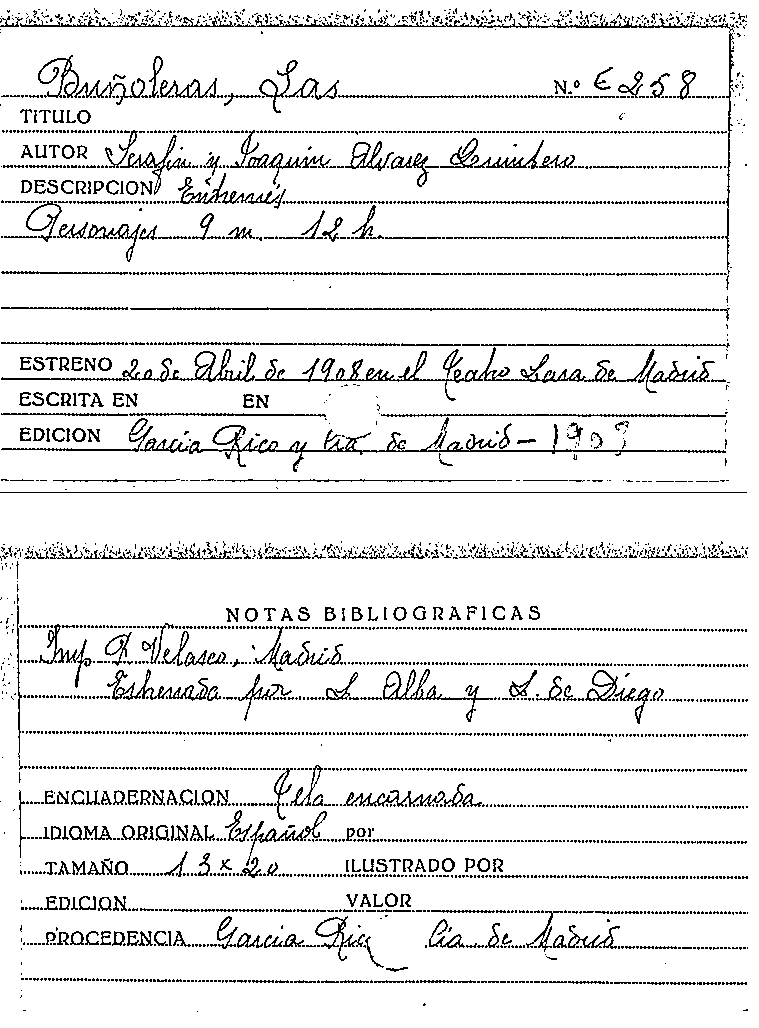 Buñoleras, Las N.º E 258
TITULO
AUTOR Serafin y Joaquin Alvarez Quintero
DESCRIPCION Entremés
Personajes 9 m. 12 h.
ESTRENO 20 de Abril de 1908 en el Teatro Lara de Madrid
ESCRITA EN EN
EDICION Garcia Rico y Cia. de Madrid - 1909
NOTAS BIBLIOGRAFICAS
Imp R Velasco, Madrid
Estrenada por L Alba y L. de Diego
ENCUADERNACION Tela encarnada
IDIOMA ORIGINAL Español por
TAMAÑO 13 x 20 ILUSTRADO POR
EDICION VALOR
PROCEDENCIA Garcia Rico Cia de Madrid